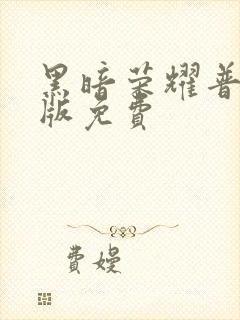 黑暗荣耀普
版免費
費嫚